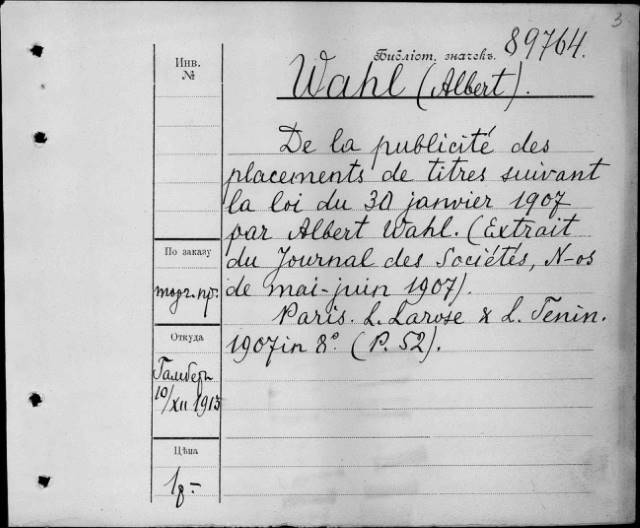 3
Библіот. значекъ. 89764.
Инв.
№
Wahl (Albert).
De la publicité des
placements de titres suivant
la loi du 30 janvier 1907
par Albert Wahl. (Extrait
du Journal des Sociétés, N-os
de mai-juin 1907).
Paris. L. Larose & L. Tenin.
1907 in 8º. (P. 52).
По заказу
торг. пр.
Откуда
Гамберъ
10/XII 1913
Цѣна
1 f.-